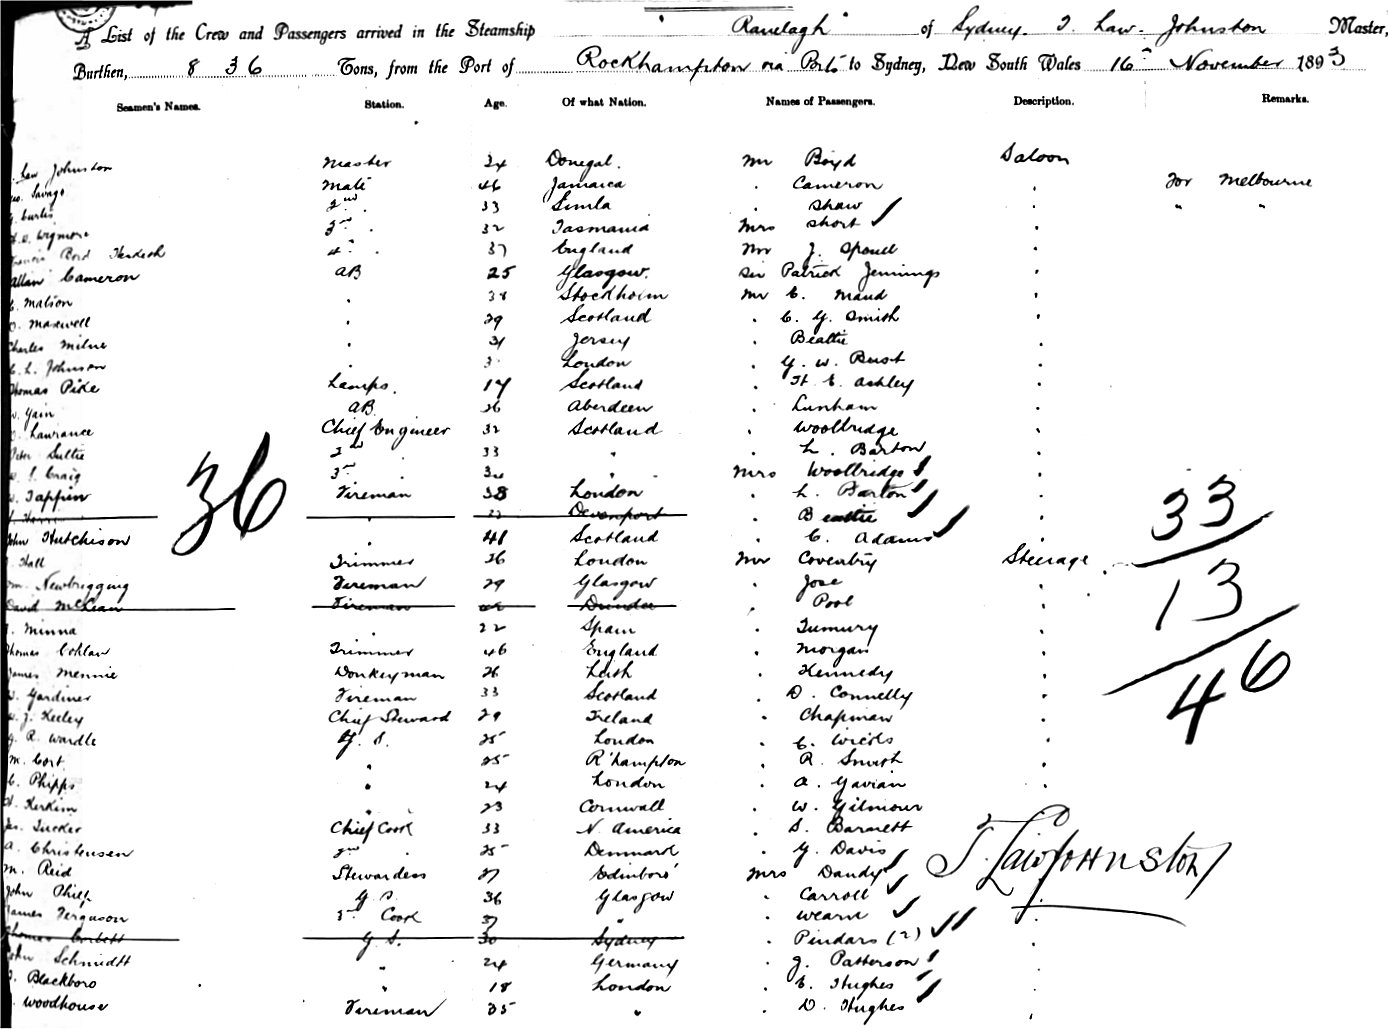 A List of the Crew and Passengers arrived in the Steamship "Ranelagh" of Sydney. T. Law. Johnston Master,
Burthen, 836 Tons, from the Port of Rockhampton via Ports to Sydney, New South Wales 16th November 1893
Seamen's Names. Station. Age. Of what Nation. Names of Passengers. Description. Remarks.
Law Johnston Master 34 Donegal. Mr Boyd Saloon
Savage Mate 46 Jamaica . Cameron . For Melbourne
Curtis 2nd . 33 Simla . Shaw . " "
Wigmore 3rd . 32 Tasmania Mrs Short .
Francis Bord 4th . 37 England Mr J. .
Allan Cameron AB 25 Glasgow. Sir Patrick Jennings .
C. Matson . 38 Stockholm Mr C. Maud .
D. Maxwell . 29 Scotland . C. G. Smith .
Charles Milne . 31 Jersey . Beattie .
C. L. Johnson . London . G. W. Rust .
Thomas Pike Lamps. 17 Scotland . H. E. Ashley .
Yain AB 26 Aberdeen . Lunham .
Lawrance Chief Engineer 32 Scotland . Woolbridge .
Peter Suttie 2nd . 33 " . L. Barton .
Craig 3rd . " Mrs Woolbridge .
Tappin Fireman 38 London . L. Barton .
. 32 Devonport . Beattie .
John Hutchison . 41 Scotland . C. Adams .
Hall Trimmer 26 London Mr Coventry Steerage
Wm. Newbrigging Fireman 29 Glasgow . Jose .
David McLean Fireman Dundee . Pool .
Minna . 22 Spain . Tumury .
Thomas Trimmer 46 England . Morgan .
James Mennie Donkeyman 26 Leith . Kennedy .
W. Gardiner Fireman 33 Scotland . D. Connelly .
J. Keeley Chief Steward 29 Ireland . Chapman .
G. R. Wardle G. S. 25 London . C. .
M. Cort. " 25 R'hampton . R. Smith .
C. Phipps " 24 London . A. Gavian .
H. Kerkin " 23 Cornwall . W. Gilmour
Jas. Tucker Chief Cook 33 N. America . S. Barnett
A. Christensen 2nd " 25 Denmark . G. Davis
M. Reid Stewardess 27 Edinboro' Mrs Dandy
John Philp G S. 36 Glasgow . Carroll
James Ferguson 3rd Cook 37 " . Wearn
Thomas Corbett G S. 30 Sydney . Pindars (2)
John Schmidt " 24 Germany . J. Patterson
Blackboro " 18 London . E. Hughes
Woodhouse Fireman 35 " . D. Hughes
36
33
13
46
T. Law Johnston